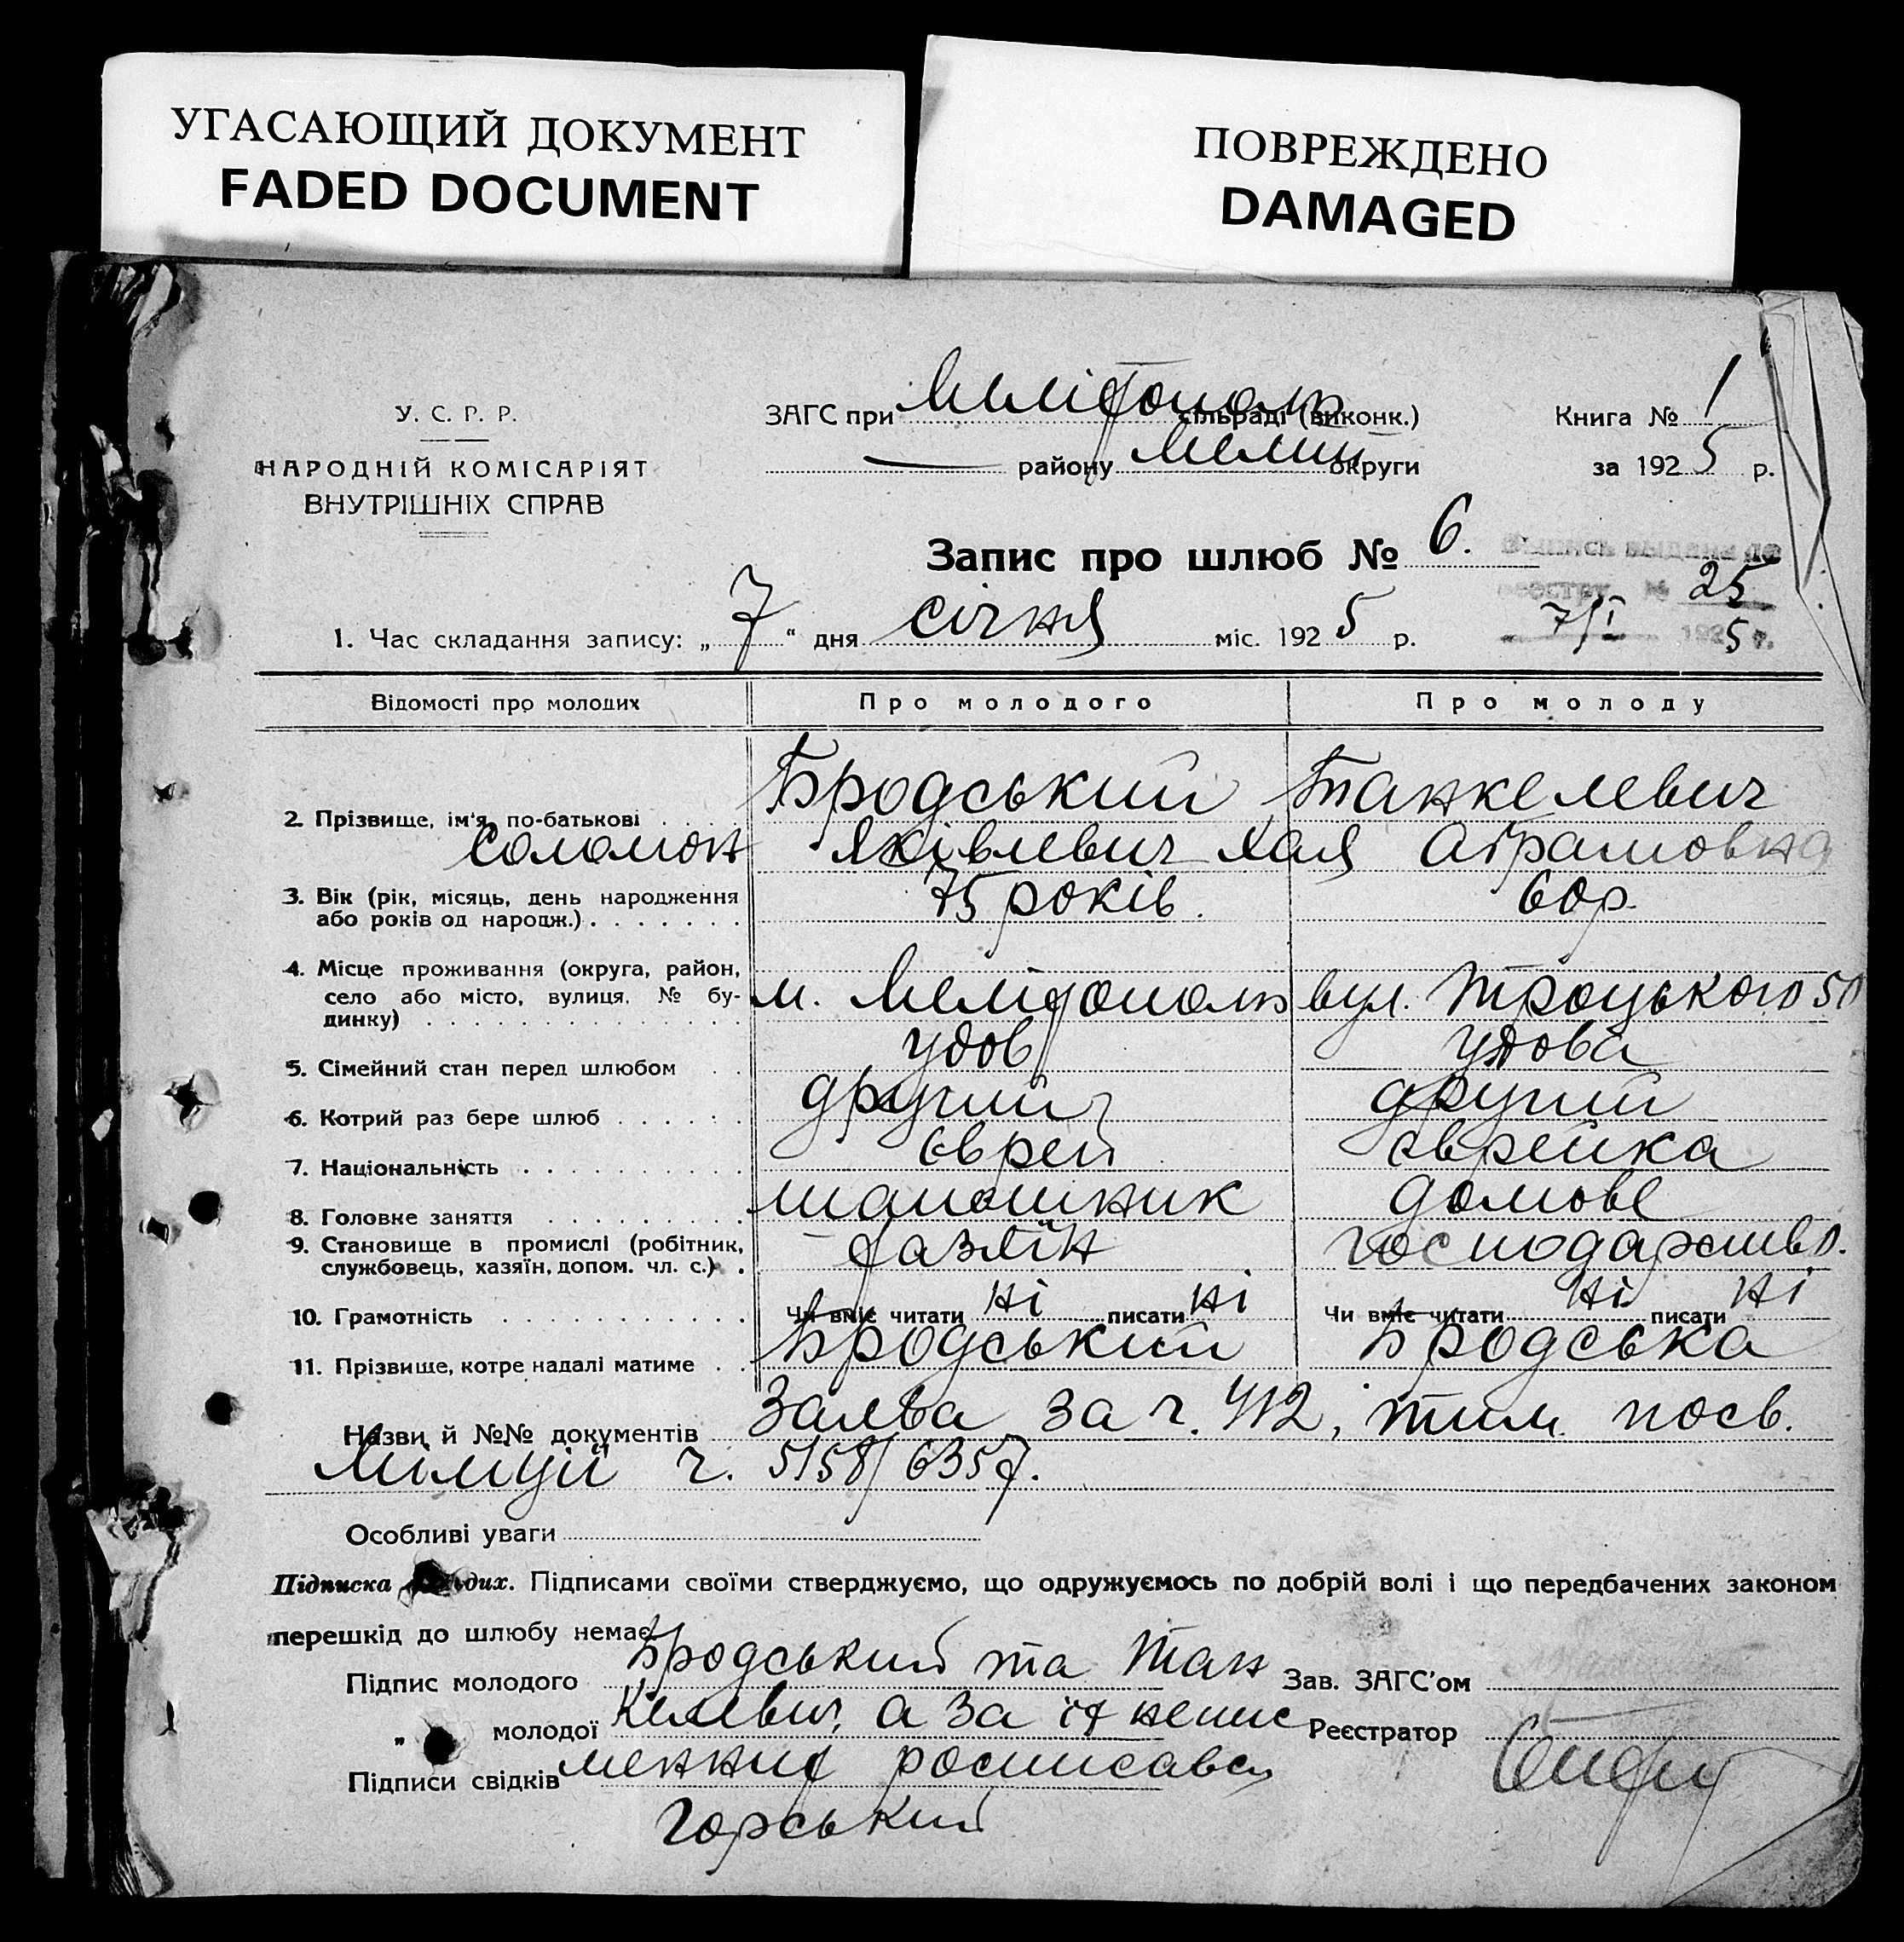 УГАСАЮЩИЙ ДОКУМЕНТ
FADED DOCUMENT
ПОВРЕЖДЕНО
DAMAGED
У. С. Р. Р.
НАРОДНІЙ КОМІСАРІЯТ
ВНУТРІШНІХ СПРАВ
ЗАГС при Меліфополь сільраді (виконк.)
району Мелит округи
Книга № 1
за 1925 р.
Запис про шлюб № 6.
Выпись выдана по
реестру № 25
7/I 1925 г.
1. Час складання запису: „7“ дня січня міс. 1925 р.
Відомості про молодих Про молодого Про молоду
2. Прізвище, ім'я, по-батькові Бродський Танкелевич
Соломон Яківлевич Хая Абрамовна
3. Вік (рік, місяць, день народження або років од народж.) 75 років. 60 р.
4. Місце проживання (округа, район, село або місто, вулиця, № будинку) м. Меліфополь вул. Троцького 50
5. Сімейний стан перед шлюбом удов удова
6. Котрий раз бере шлюб другий другий
7. Національність Єврей єврейка
8. Головне заняття шапошник домове
9. Становище в промислі (робітник, службовець, хазяїн, допом. чл. с.) господарство.
10. Грамотність Чи вміє читати ні писати ні Чи вміє читати ні писати ні
11. Прізвище, котре надалі матиме Бродський Бродська
Назви й №№ документів Заява за ч. 412, тим. посв.
Міліції ч. 5158/6357.
Особливі уваги
Підписка молодих. Підписами своїми стверджуємо, що одружуємось по добрій волі і що передбачених законом
перешкід до шлюбу немає.
Підпис молодого Бродський та Тан Зав. ЗАГС'ом
„ молодої келевич, а за їх непис Реєстратор
Підписи свідків менних росписався
Горський